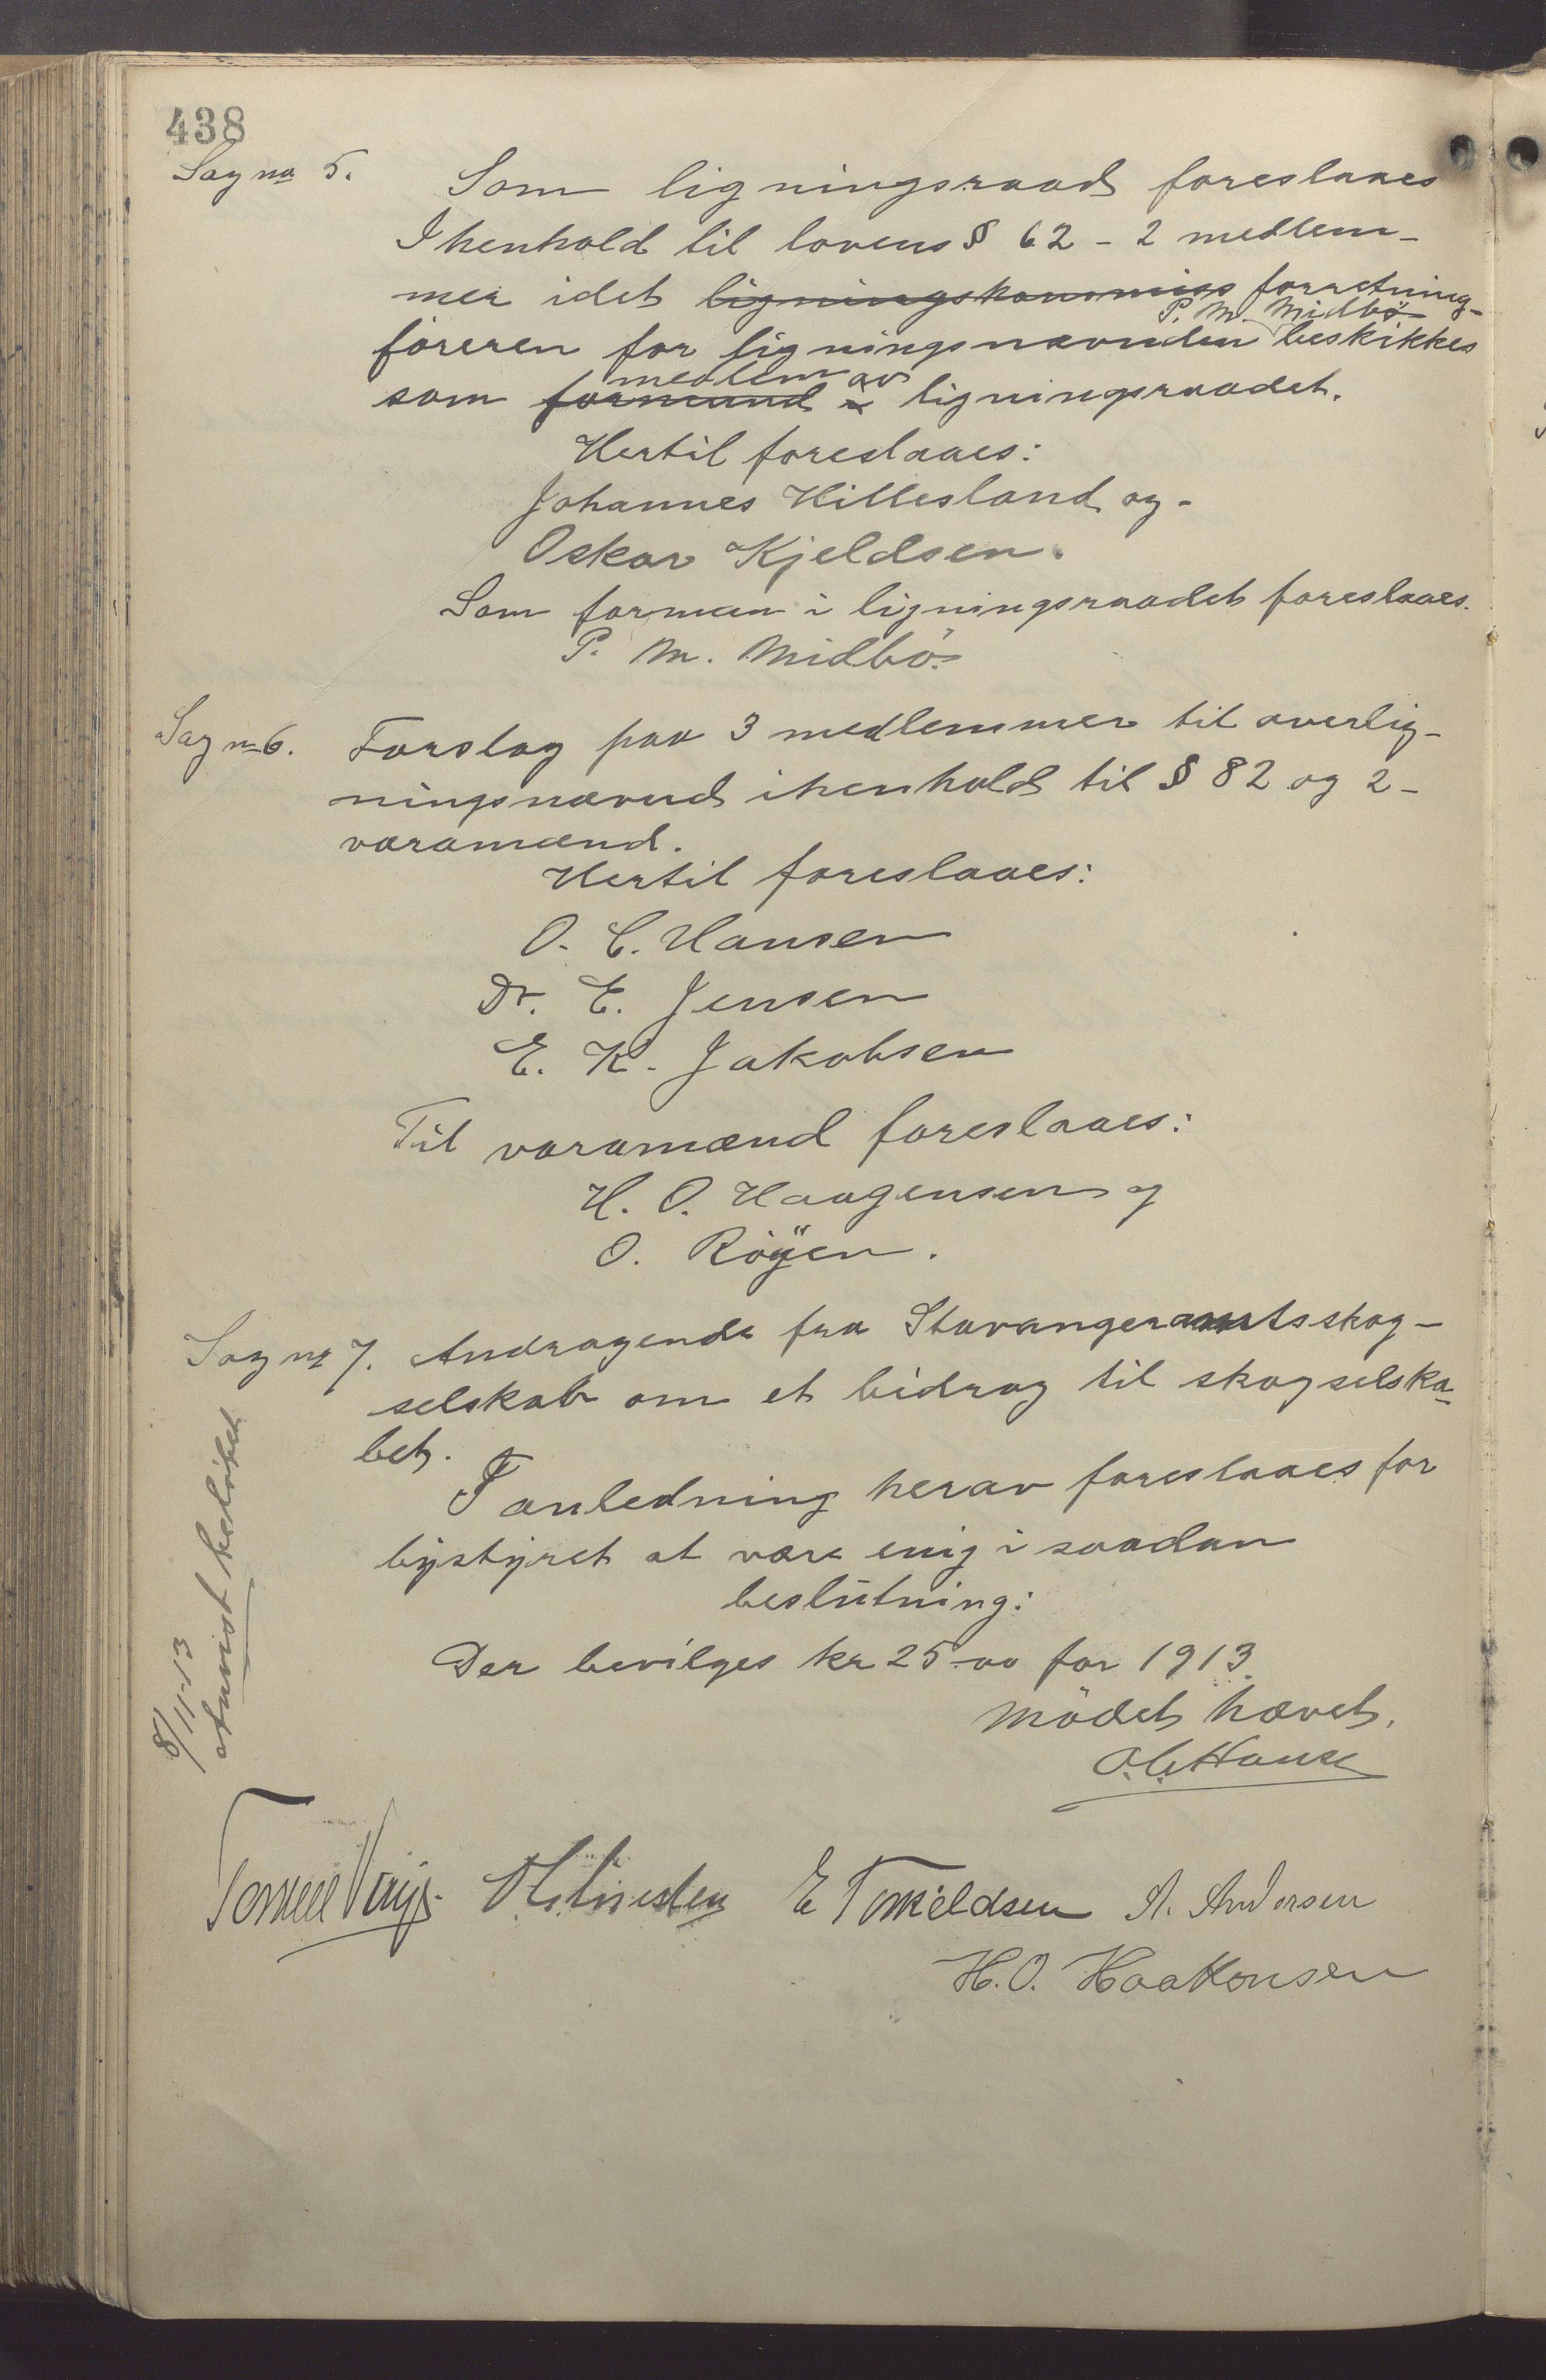 438
Sag no 5. Som ligningsraad foreslaaes
I henhold til lovens § 62 - 2 medlem-
mer idet ligningskommiss forretning-
P. M. Midbö
föreren for ligningsnævnden beskikkes
medlem av
som formand i ligningsraadet.
Hertil foreslaaes:
Johannes Hillesland og -
Oskar Kjeldsen.
Som forman i ligningsraadet foreslaaes.
P. M. Midbö.
Sag no 6. Forslag paa 3 medlemmer til overlig-
ningsnævnd ihenhold til § 82 og 2 -
varamænd.
Hertil foreslaaes:
O. C. Hansen
Dr. E. Jensen
E. K. Jakobsen
Til varamænd foreslaaes:
H. O. Haagensen og
O. Röÿen.
Sag no 7. Andragende fra Stavanger amtsskog-
selskab om et bidrag til skogselska-
bet.
I anledning herav foreslaaes for
bÿstÿret at være enig i saadan
beslutning:
Der bevilges kr 25-00 for 1913.
Mödet hævet.
O. C. Hansen
8/11-13
Anvist belöbet
E Torkeldsen A. Andersen
H. O. Haakonsen